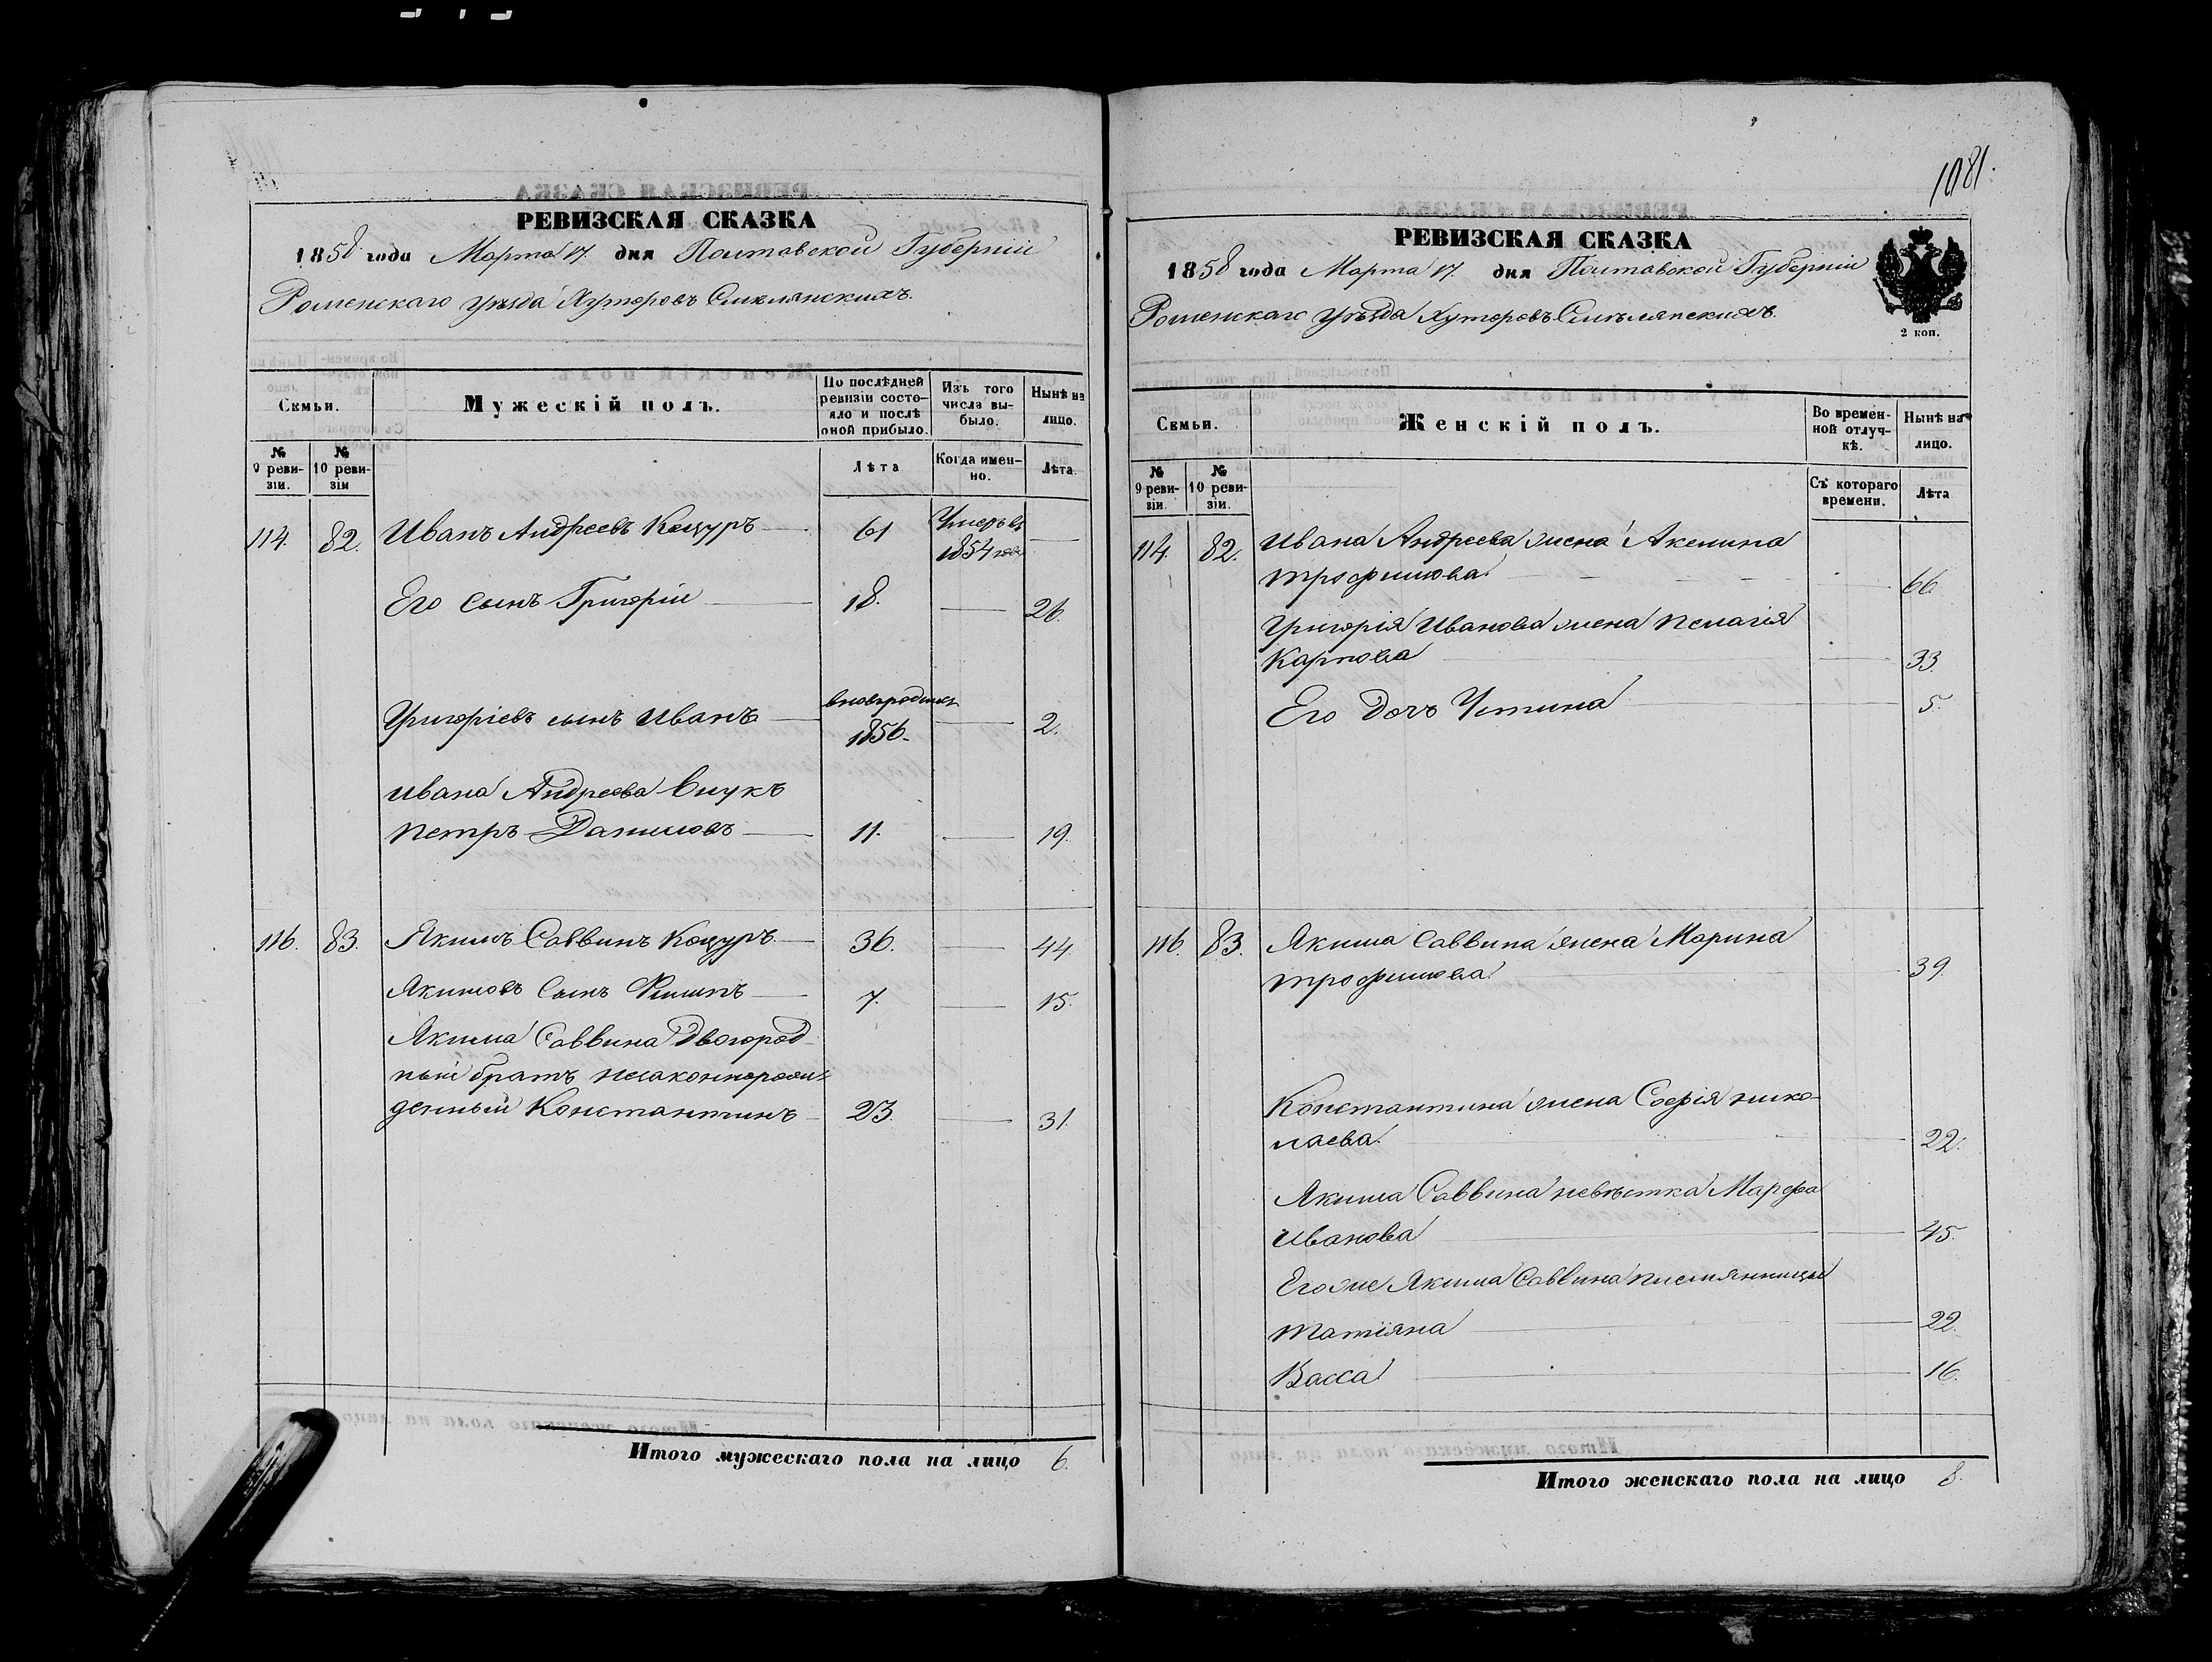 1081.
РЕВИЗСКАЯ СКАЗКА
1858 года Марта 17. дня Полтавской Губерніи
Роменскаго уѣзда Хуторовъ Смѣлянскихъ.
Семьи.
Мужескій полъ.
По послѣдней ревизіи состояло и послѣ оной прибыло.
Изъ того числа выбыло.
Нынѣ на лицо.
№ 9 ревизіи.
№ 10 ревизіи
Лѣта
Когда именно.
Лѣта.
114. 82. Иванъ Андреевъ Коцуръ 61 Умеръ въ 1854 годе
Его сынъ Григорій 18. 26.
Григоріевъ сынъ Иванъ вновьродился 1856. 2.
Ивана Андреева внукъ
Петръ Даниловъ 11. 19.
116. 83. Якимъ Саввинъ Коцуръ 36. 44.
Якимовъ сынъ Филипъ 7. 15.
Якима Саввина двоюрод
ный братъ незаконнорож
денный Константинъ 23. 31.
Итого мужескаго пола на лицо 6.
РЕВИЗСКАЯ СКАЗКА
1858 года Марта 17. дня Полтавской Губерніи
Роменскаго уѣзда Хуторовъ Смѣлянскихъ.
2 коп.
Семьи.
Женскій полъ.
Во временной отлучкѣ.
Нынѣ на лицо.
№ 9 ревизіи
№ 10 ревизіи.
Съ котораго времени.
Лѣта
114. 82. Ивана Андреева жена Акелина
Трофимова 66
Григорія Иванова жена Пелагія
Карпова 33.
Его дочь Устина 5.
116. 83. Якима Саввина жена Марина
Трофимова 39.
Константина жена Софія Нико
лаева. 22.
Якима Саввина невѣстка Марфа
Иванова 45.
Его же Якима Саввина племянницы
Татіяна 22.
Васса 16.
Итого женскаго пола на лицо 8.